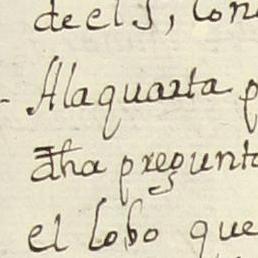 de el S, Con
- A la quarta p
dha pregunta
el lobo que